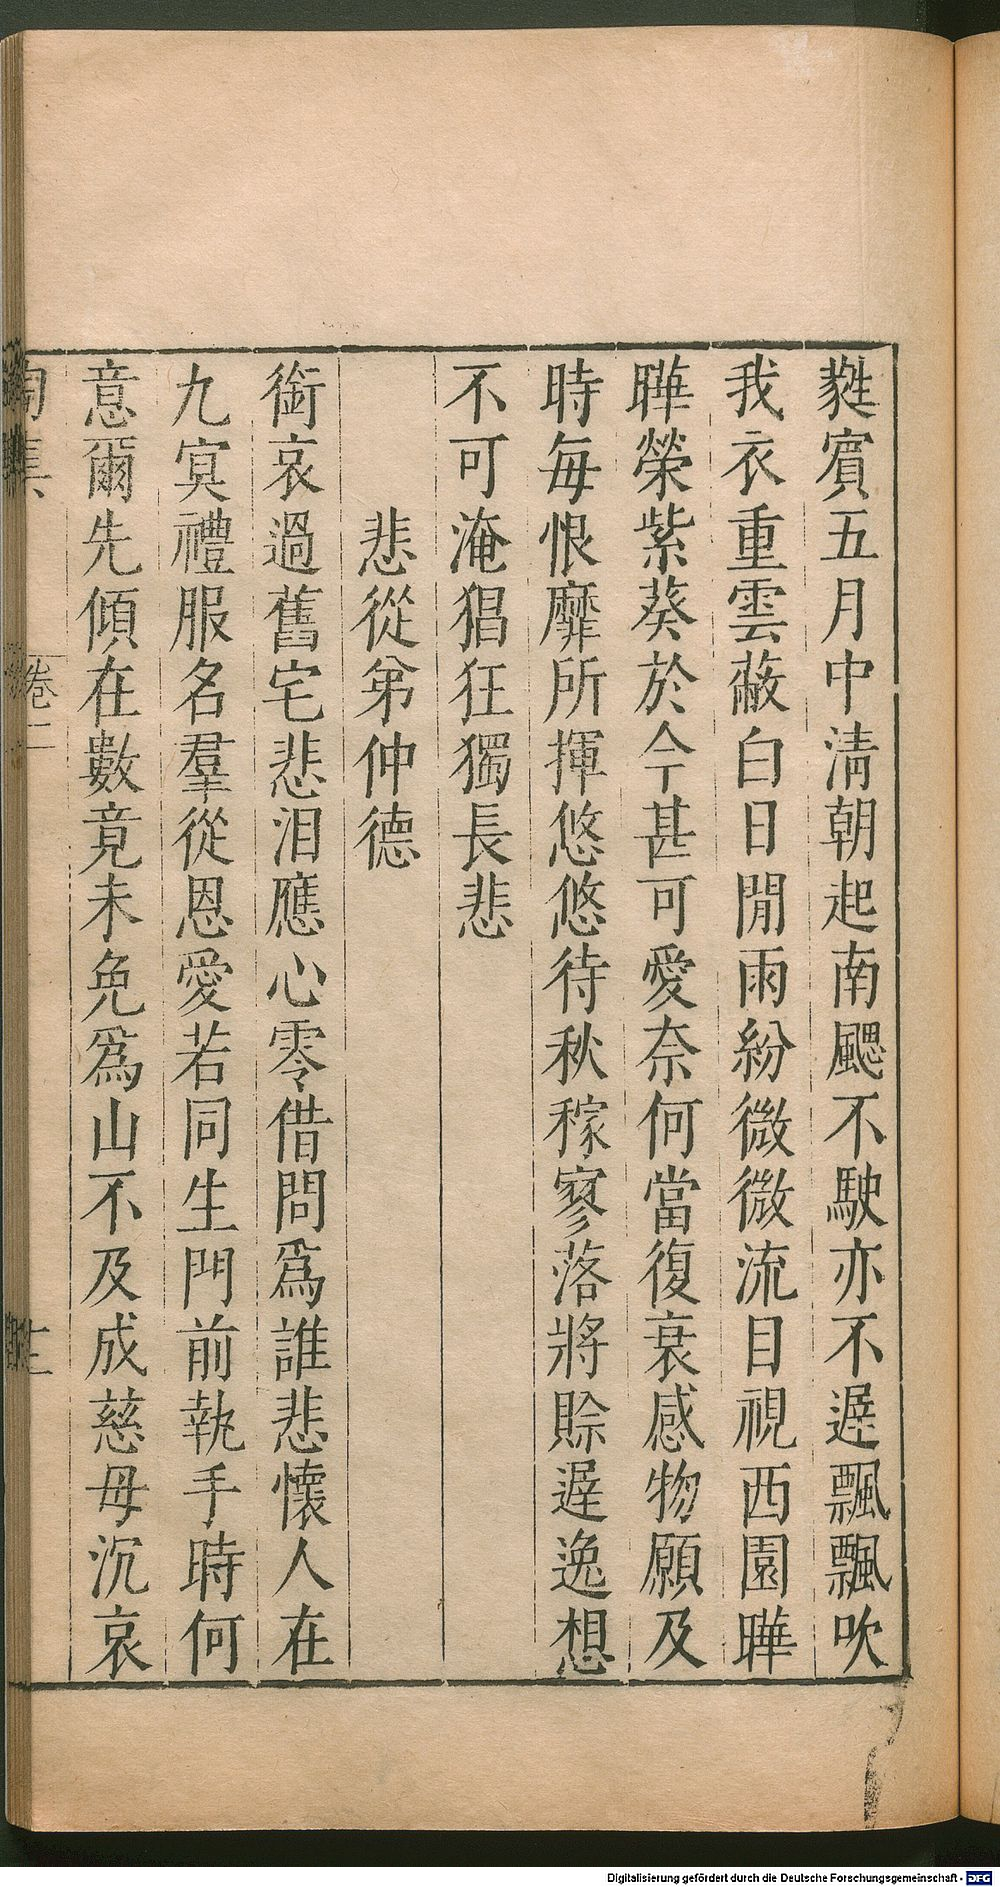 蕤賔五月中淸朝起南颸不駛亦不遟飄飄吹
我衣重雲蔽白日閒雨紛微微流目視西園曄
曄榮紫葵於今甚可愛奈何當復衰感物願及
時每恨靡所揮悠悠待秋稼寥落將賒遟逸想
不可淹猖狂獨長悲
悲從弟仲德
銜哀過舊宅悲泪應心零借問爲誰悲懷人在
九㝠禮服名羣從恩愛若同生門前執手時何
意爾先傾在數竟未免爲山不及成慈母沉哀
陶集
卷二
Digitalisierung gefördert durch die Deutsche Forschungsgemeinschaft - DFG